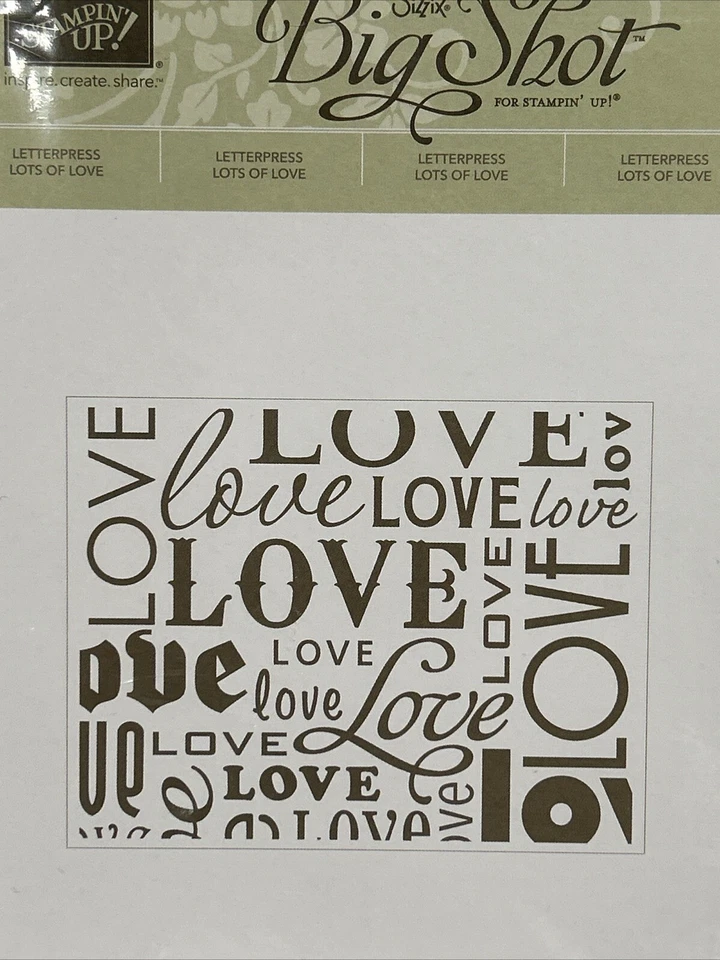 STAMPIN' UP!®
inspire.create.share.™
Sizzix®
Big Shot™
FOR STAMPIN' UP!®
LETTERPRESS LETTERPRESS LETTERPRESS LETTERPRESS
LOTS OF LOVE LOTS OF LOVE LOTS OF LOVE LOTS OF LOVE
LOVE
LOVE
lov
love
LOVE
love
LOVE
LOVE
LOVE
ove
LOVE
love
Love
LOVE
ve
LOVE
LOVE
ove
lo
LOVE